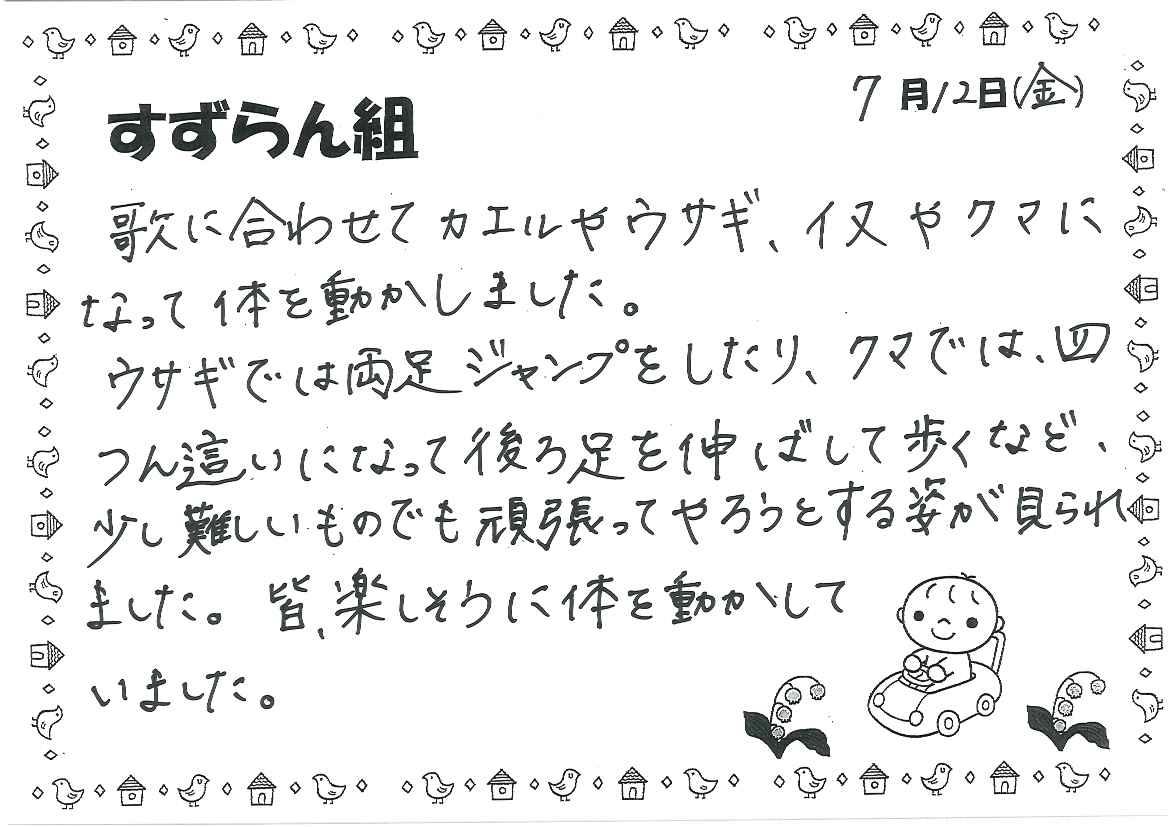 7月12日(金)
すずらん組
歌に合わせてカエルやウサギ、イヌやクマに
なって体を動かしました。
ウサギでは両足ジャンプをしたり、クマでは、四
つん這いになって後ろ足を伸ばして歩くなど、
少し難しいものでも頑張ってやろうとする姿が見られ
ました。皆、楽しそうに体を動かして
いました。